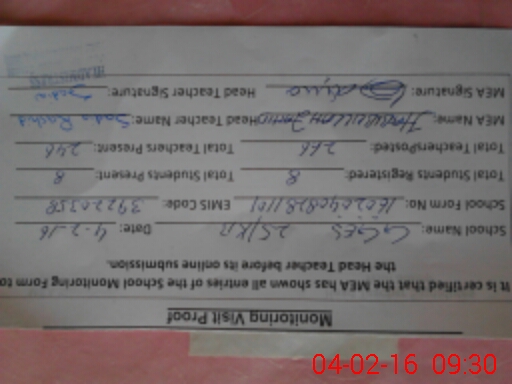 Monitoring Visit Proof
It is certified that the MEA has shown all entries of the School Monitoring Form to
the Head Teacher before its online submission.
School Name: GGES 25/KB Date: 4-2-16
School Form No: EMIS Code: 39220358
Total Students Registered: 8 Total Students Present: 8
Total TeachersPosted: 266 Total Teachers Present: 246
MEA Name: Head Teacher Name: Sadia Rashid
MEA Signature: Head Teacher Signature:
04-02-16 09:30